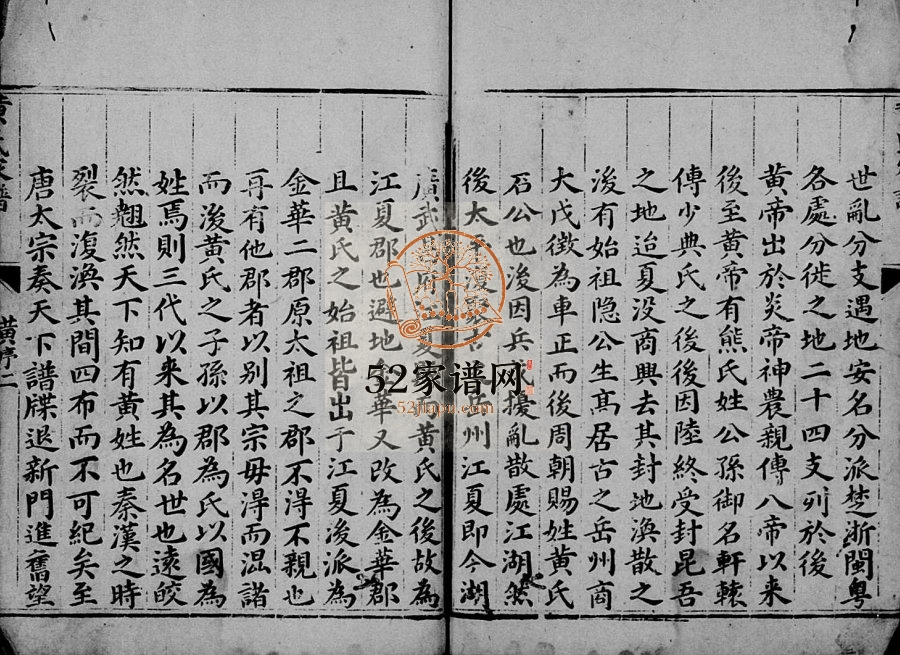 世亂分支遇地安名分派楚浙閩粵
各處分徙之地二十四支列於後
黃帝出於炎帝神農親傳八帝以來
後至黃帝有熊氏姓公孫御名軒轅
傳少典氏之後後因陸終受封昆吾
之地迨夏没商興去其封地渙散之
後有始祖隐公生髙居古之岳州商
大戊徵為車正而後周朝賜姓黃氏
石公也後因兵戎擾亂散處江湖然
後太平復聚古岳州江夏即今湖
廣武昌府夏而黃氏之後故為
江夏郡也避地金華又改為金華郡
且黃氏之始祖皆出于江夏後派為
金華二郡原太祖之郡不得不親也
再有他郡者以别其宗毋得而混諸
而後黃氏之子孫以郡為氏以國為
姓焉則三代以来其為名世也遠皎
然翹然天下知有黃姓也秦漢之時
裂而復渙其間四布而不可紀矣至
唐太宗奏天下譜牒退新門進舊望
黃氏家譜
黃序二
52家谱网
52jiapu.com